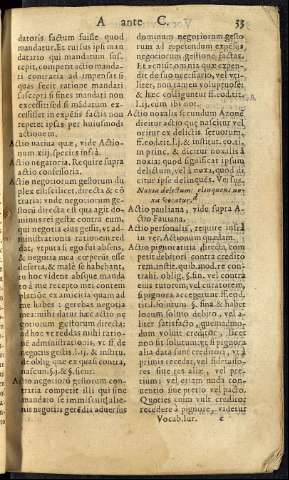 A ante C. 33
datoris factum fuisse quod
mandatur. Et cur ius ipsi man
datario qui mandatum sus-
cepit, competit actio manda
ti contraria ad impensas si
quas fecit ratione mandati
suscepti si fines mandati non
excesserit sed si mãdatum ex-
cesserit in expẽsis factis non
repetet ipsas per huiusmodi
actionem.
Actio natiua quæ, vide Actio-
num
Actio negatoria. Require supra
actio confessoria.
Actio negotiorum gestorum du
plex est, scilicet directa & cõ
traria: vnde negotiorum ge-
storum directa est qua agit do-
minus rei gestæ contra eum,
qui negotia eius gessit, vt ad-
ministrationis rationem red-
dat, vtputa si ego fui absens,
& negotia mea corporis esse
deserta, & male se habebant,
tu hoc videns absque manda
to a me recepto mei contem
platione ex amicitia quam ad
me habes: gerebas negotia
mea mihi datur hæc actio ne
gotiorum gestorum directa,
ad hoc vt reddas mihi ratio-
nẽ administrationis, vt ff. de
negotiis gestis. l. ij. & institu.
de oblig. quæ ex quasi contra.
nascun. §. j. & §. sicut.
Actio negotiorum gestorum con-
traria competit illi qui sine
mandato se immiscuit alie-
nis negotiis gerẽdis aduersus
dominum negotiorum gesto-
rum ad repetendum expẽsis,
negotiorum gestiono factas.
Et vtrum omnia quæ expen-
dit de suo necessario, vel vti-
liter, non tamen voluptuose:
& hæc colliguntur ff. eo. tit.
l. ij. cum ibi not.
Actio noxalis secundum Azonẽ
dicitur actio quæ nascitur vel
oritur ex delictis seruorum,
ff. eodem tit. l. j. & institut. eo. ti.
in prin. & dicitur noxalis à
noxa: quod significat ipsum
delictum, vel à noxa, quod di
citur ipse delinquens. Vel sic,
Noxæ delictum: delinquens no-
xa vocatur.
Actio pauliana, vide supra A-
ctio Fauiana.
Actio personalis, require infra
in ver. Actionum quædam.
Actio pignoratitia directa, com
petit debitori contra credito
rem, instit. quib. mod. re con-
trahi. oblig. §. fin. vel contra
eius tutorem, vel curatorem,
si pignora acceperunt ff. eod.
tit. l. solutum. §. fina. & habet
locum soluto debito, vel a-
liter satisfacto, quemadmo-
dum voluit creditor, licet
non sit solutum: vt si pignora
alia data sint creditori, vt à
primis recedat, vel fideiusso-
res sine res aliæ, vel pre-
tium: vel etiam nuda con-
uentio sine pretio vel pacto.
Quoties enim vult creditor
recedere à pignore, videtur
Vocab. Iur. e